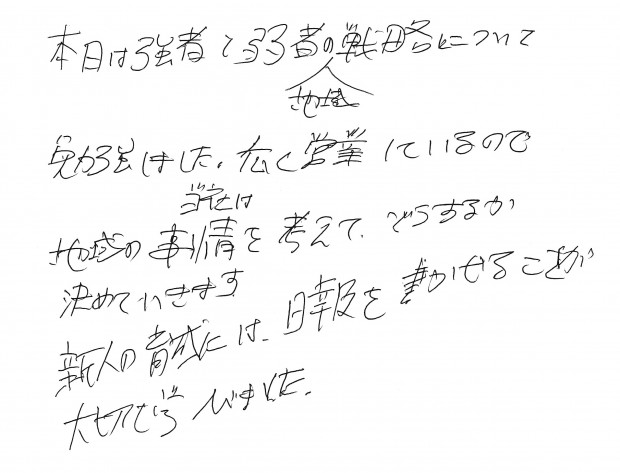 本日は強者と弱者の戦略について
地域
勉強しました。広く営業しているので
当社は
地域の事情を考えて、どうするか
決めていきます
新人の育成には、日報を書かせることが
大切と学びました。